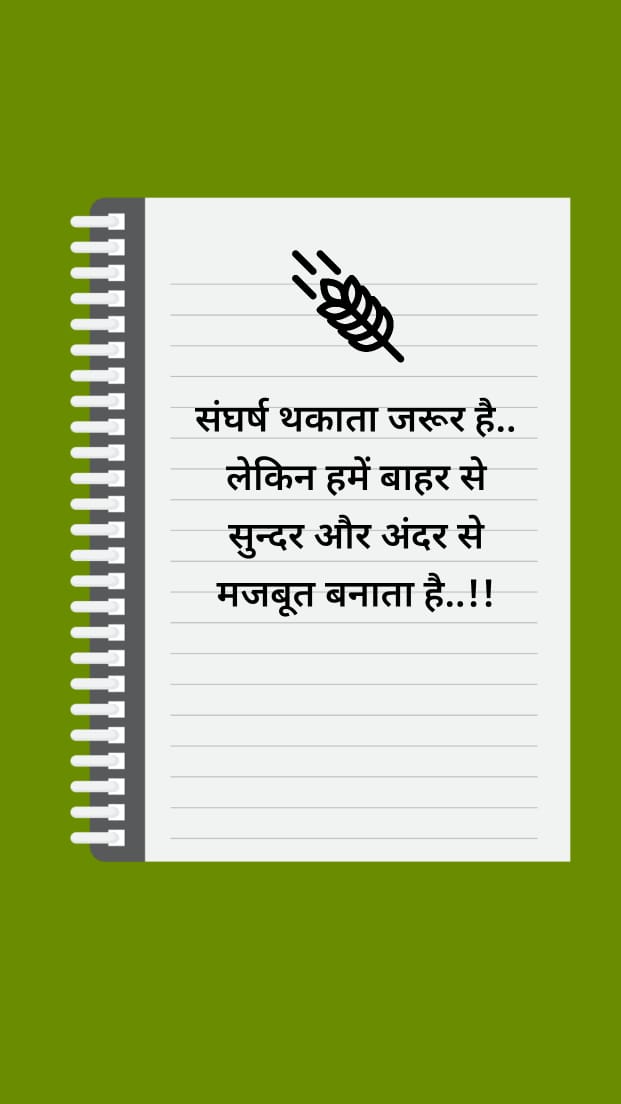 संघर्ष थकाता जरूर है..
लेकिन हमें बाहर से
सुन्दर और अंदर से
मजबूत बनाता है..!!